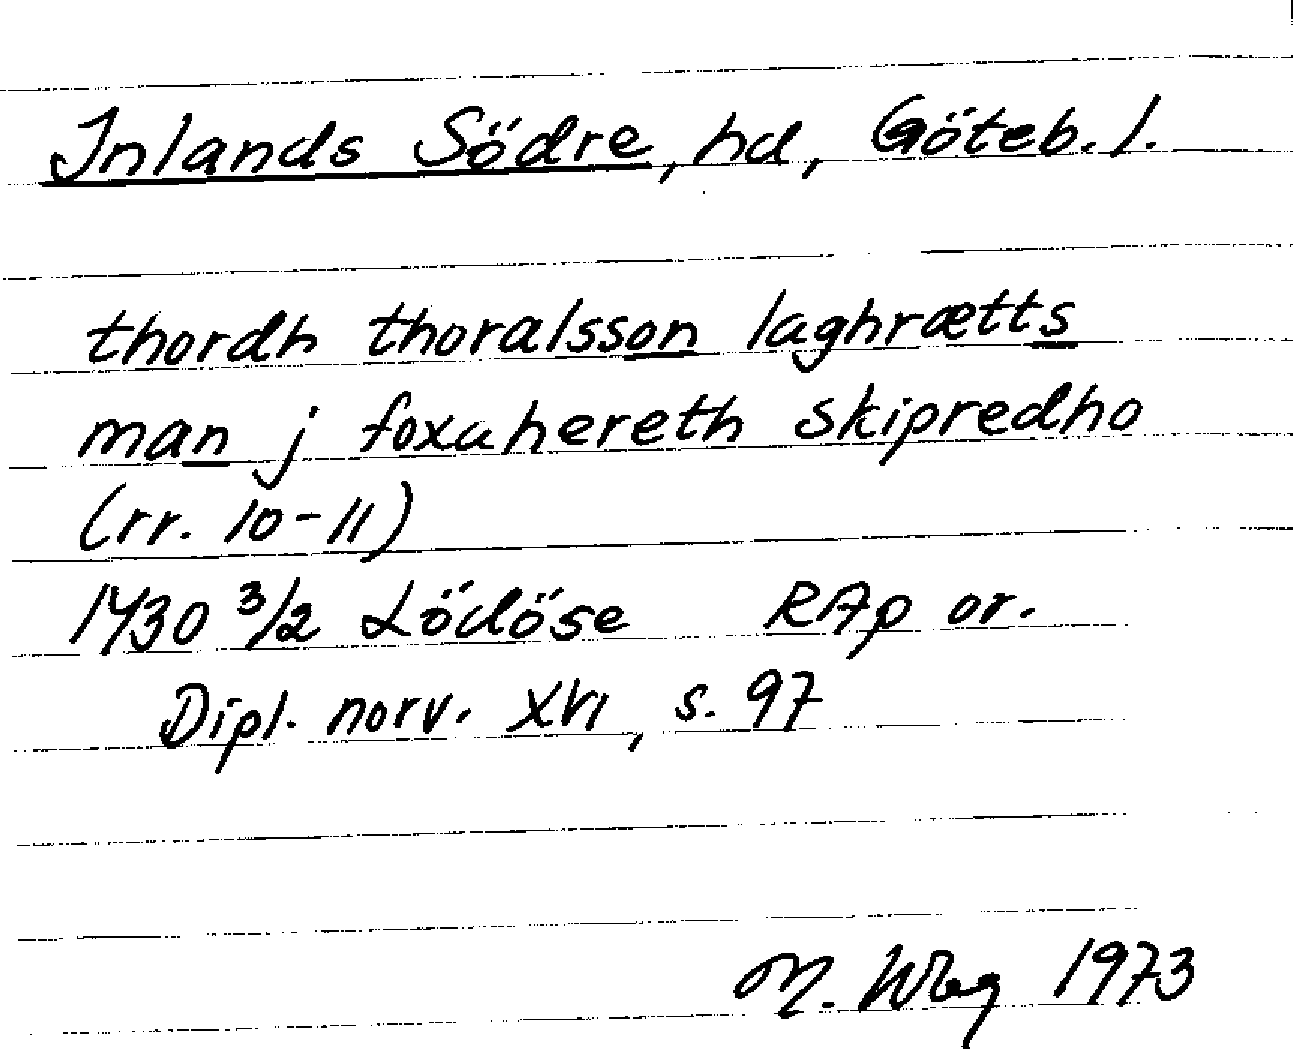 Inlands Södre, hd, Göteb. l.
thordh thoralsson laghrætts
man j foxuhereth skipredho
(rr. 10-11)
1430 3/2 Lödöse RAp or.
Dipl. norv. XVI, s. 97
M. 1973